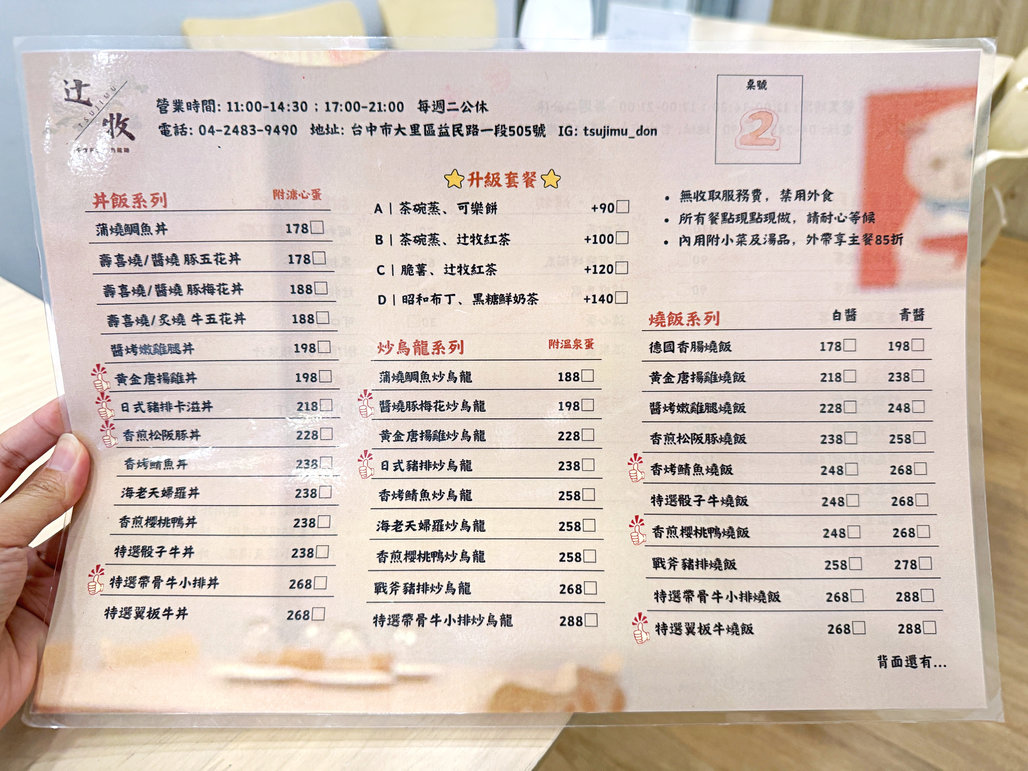 辻牧
TSUJIMU
營業時間: 11:00-14:30；17:00-21:00 每週二公休
電話: 04-2483-9490 地址: 台中市大里區益民路一段505號 IG: tsujimu_don
桌號
2
丼飯系列 附溏心蛋
蒲燒鯛魚丼 178□
壽喜燒/醬燒 豚五花丼 178□
壽喜燒/醬燒 豚梅花丼 188□
壽喜燒/炙燒 牛五花丼 188□
醬烤嫩雞腿丼 198□
黃金唐揚雞丼 198□
日式豬排卡滋丼 218□
香煎松阪豚丼 228□
香烤鯖魚丼 238□
海老天婦羅丼 238□
香煎櫻桃鴨丼 238□
特選骰子牛丼 238□
特選帶骨牛小排丼 268□
特選翼板牛丼 268□
⭐升級套餐⭐
A｜茶碗蒸、可樂餅 +90□
B｜茶碗蒸、辻牧紅茶 +100□
C｜脆薯、辻牧紅茶 +120□
D｜昭和布丁、黑糖鮮奶茶 +140□
炒烏龍系列 附溫泉蛋
蒲燒鯛魚炒烏龍 188□
醬燒豚梅花炒烏龍 198□
黃金唐揚雞炒烏龍 228□
日式豬排炒烏龍 238□
香烤鯖魚炒烏龍 258□
海老天婦羅炒烏龍 258□
香煎櫻桃鴨炒烏龍 258□
戰斧豬排炒烏龍 268□
特選帶骨牛小排炒烏龍 288□
• 無收取服務費，禁用外食
• 所有餐點現點現做，請耐心等候
• 內用附小菜及湯品，外帶享主餐85折
燒飯系列 白醬 青醬
德國香腸燒飯 178□ 198□
黃金唐揚雞燒飯 218□ 238□
醬烤嫩雞腿燒飯 228□ 248□
香煎松阪豚燒飯 238□ 258□
香烤鯖魚燒飯 248□ 268□
特選骰子牛燒飯 248□ 268□
香煎櫻桃鴨燒飯 248□ 268□
戰斧豬排燒飯 258□ 278□
特選帶骨牛小排燒飯 268□ 288□
特選翼板牛燒飯 268□ 288□
背面還有...